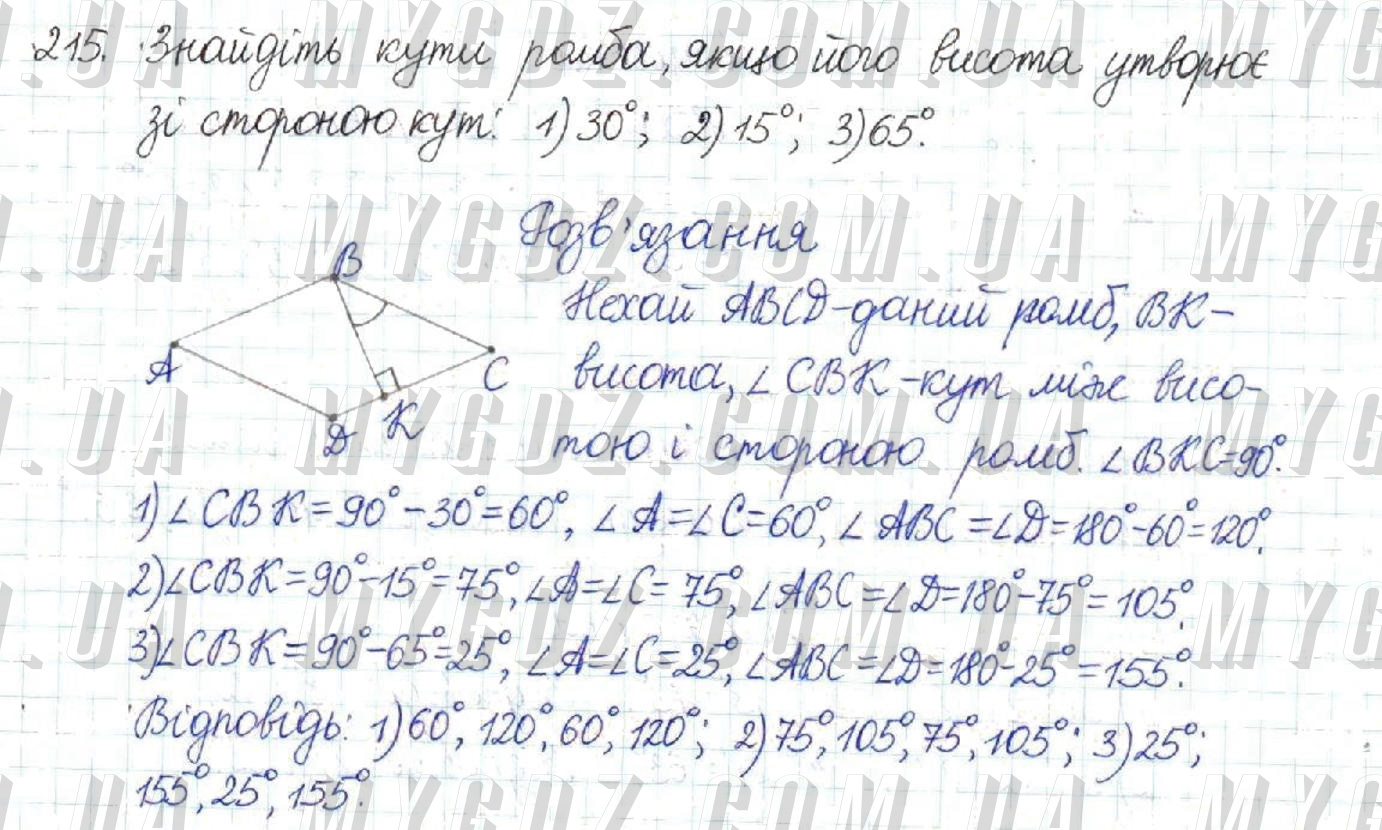 215. Знайдіть кути ромба, якщо його висота утворює
зі стороною кут: 1) 30°; 2) 15°; 3) 65°.
Розв'язання
B
A
C
D
K
Нехай ABCD - даний ромб, BK -
висота, ∠CBK - кут між висо-
тою і стороною ромб. ∠BKC=90°.
1) ∠CBK = 90° - 30° = 60°, ∠A = ∠C = 60°, ∠ABC = ∠D = 180° - 60° = 120°.
2) ∠CBK = 90° - 15° = 75°, ∠A = ∠C = 75°, ∠ABC = ∠D = 180° - 75° = 105°.
3) ∠CBK = 90° - 65° = 25°, ∠A = ∠C = 25°, ∠ABC = ∠D = 180° - 25° = 155°.
Відповідь: 1) 60°, 120°, 60°, 120°; 2) 75°, 105°, 75°, 105°; 3) 25°;
155°, 25°, 155°.
MYGDZ.COM.UA